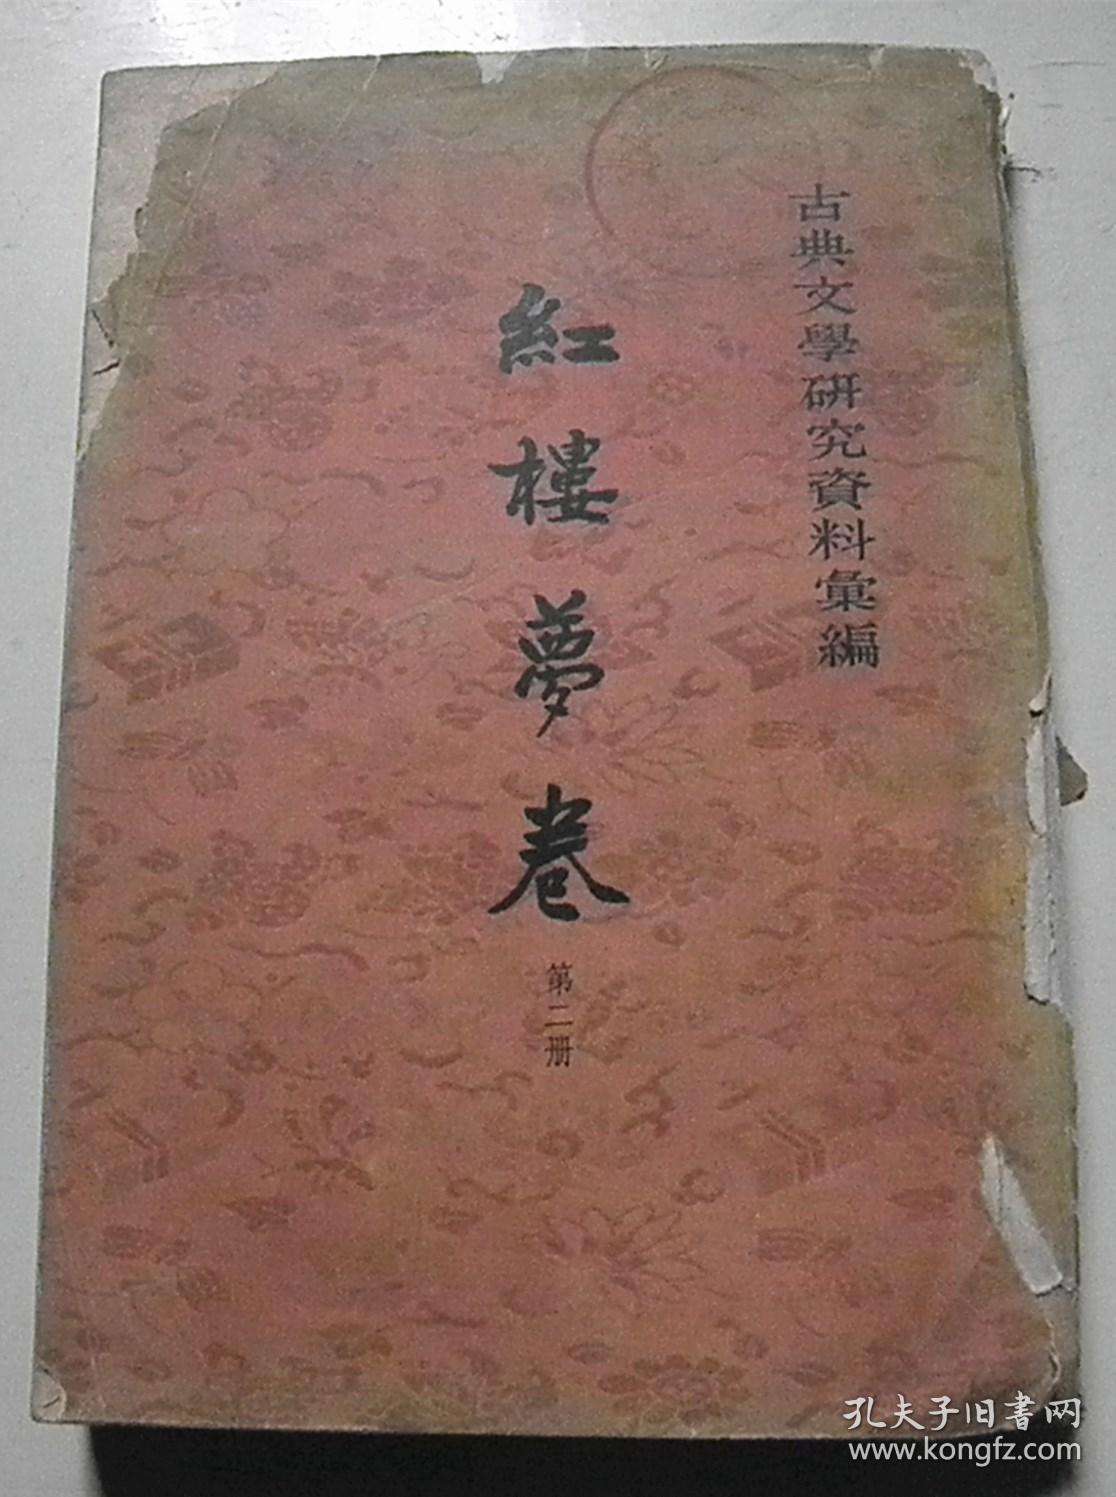 古典文學研究資料彙編
紅樓夢卷
第二册
孔夫子旧書网
www.kongfz.com